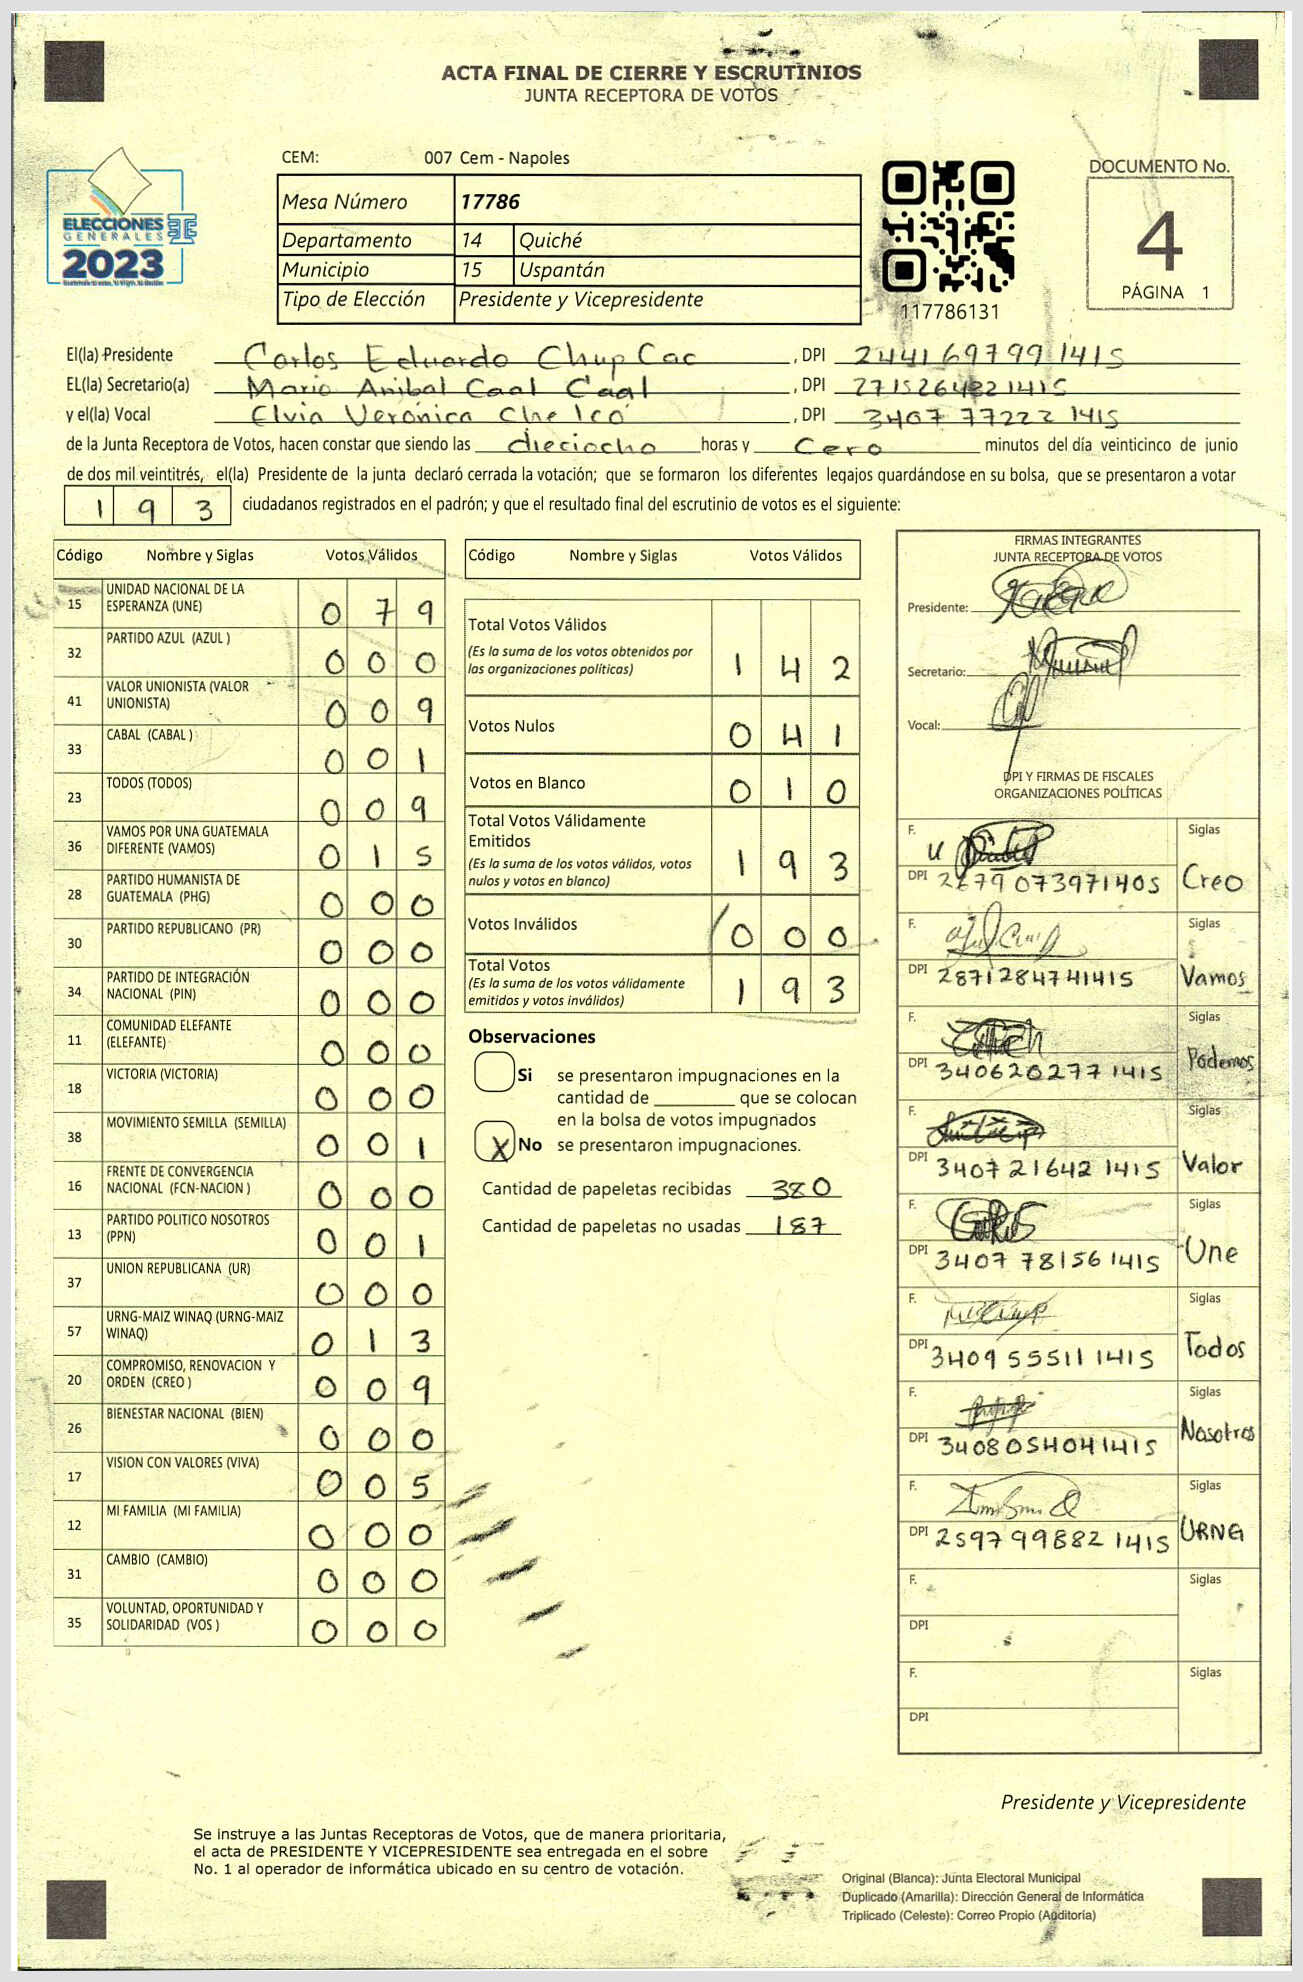 ACTA FINAL DE CIERRE Y ESCRUTINIOS
JUNTA RECEPTORA DE VOTOS
ELECCIONES
GENERALES
2023
CEM: 007 Cem - Napoles
Mesa Número 17786
Departamento 14 Quiché
Municipio 15 Uspantán
Tipo de Elección Presidente y Vicepresidente
117786131
DOCUMENTO No.
4
PÁGINA 1
El(la) Presidente Carlos Eduardo Chup Cac, DPI 2441 69799 1415
EL(la) Secretario(a) Mario Anibal Caal Caal, DPI 2715264821415
y el(la) Vocal Elvia Verónica Che Icó, DPI 3407 77222 1415
de la Junta Receptora de Votos, hacen constar que siendo las dieciocho horas y Cero minutos del día veinticinco de junio
de dos mil veintitrés, el(la) Presidente de la junta declaró cerrada la votación; que se formaron los diferentes legajos guardándose en su bolsa, que se presentaron a votar
193 ciudadanos registrados en el padrón; y que el resultado final del escrutinio de votos es el siguiente:
Código Nombre y Siglas Votos Válidos
15 UNIDAD NACIONAL DE LA ESPERANZA (UNE) 0 7 9
32 PARTIDO AZUL (AZUL ) 0 0 0
41 VALOR UNIONISTA (VALOR UNIONISTA) 0 0 9
33 CABAL (CABAL ) 0 0 1
23 TODOS (TODOS) 0 0 9
36 VAMOS POR UNA GUATEMALA DIFERENTE (VAMOS) 0 1 5
28 PARTIDO HUMANISTA DE GUATEMALA (PHG) 0 0 0
30 PARTIDO REPUBLICANO (PR) 0 0 0
34 PARTIDO DE INTEGRACIÓN NACIONAL (PIN) 0 0 0
11 COMUNIDAD ELEFANTE (ELEFANTE) 0 0 0
18 VICTORIA (VICTORIA) 0 0 0
38 MOVIMIENTO SEMILLA (SEMILLA) 0 0 1
16 FRENTE DE CONVERGENCIA NACIONAL (FCN-NACION ) 0 0 0
13 PARTIDO POLITICO NOSOTROS (PPN) 0 0 1
37 UNION REPUBLICANA (UR) 0 0 0
57 URNG-MAIZ WINAQ (URNG-MAIZ WINAQ) 0 1 3
20 COMPROMISO, RENOVACION Y ORDEN (CREO ) 0 0 9
26 BIENESTAR NACIONAL (BIEN) 0 0 0
17 VISION CON VALORES (VIVA) 0 0 5
12 MI FAMILIA (MI FAMILIA) 0 0 0
31 CAMBIO (CAMBIO) 0 0 0
35 VOLUNTAD, OPORTUNIDAD Y SOLIDARIDAD (VOS ) 0 0 0
Código Nombre y Siglas Votos Válidos
Total Votos Válidos 1 4 2
(Es la suma de los votos obtenidos por
las organizaciones políticas)
Votos Nulos 0 4 1
Votos en Blanco 0 1 0
Total Votos Válidamente
Emitidos 1 9 3
(Es la suma de los votos válidos, votos
nulos y votos en blanco)
Votos Inválidos 0 0 0
Total Votos 1 9 3
(Es la suma de los votos válidamente
emitidos y votos inválidos)
Observaciones
Si se presentaron impugnaciones en la
cantidad de que se colocan
en la bolsa de votos impugnados
X No se presentaron impugnaciones.
Cantidad de papeletas recibidas 380
Cantidad de papeletas no usadas 187
FIRMAS INTEGRANTES
JUNTA RECEPTORA DE VOTOS
Presidente:
Secretario:
Vocal:
DPI Y FIRMAS DE FISCALES
ORGANIZACIONES POLÍTICAS
F. Siglas
DPI 2679 073971405 Creo
F. Siglas
DPI 2871284741415 Vamos
F. Siglas
DPI 340620277 1415 Podemos
F. Siglas
DPI 3407 21642 1415 Valor
F. Siglas
DPI 3407 78156 1415 Une
F. Siglas
DPI 3409 55511 1415 Todos
F. Siglas
DPI 3408054041415 Nosotros
F. Siglas
DPI 2597 99882 1415 URNG
F. Siglas
DPI
F. Siglas
DPI
Presidente y Vicepresidente
Se instruye a las Juntas Receptoras de Votos, que de manera prioritaria,
el acta de PRESIDENTE Y VICEPRESIDENTE sea entregada en el sobre
No. 1 al operador de informática ubicado en su centro de votación.
Original (Blanca): Junta Electoral Municipal
Duplicado (Amarilla): Dirección General de Informática
Triplicado (Celeste): Correo Propio (Auditoría)